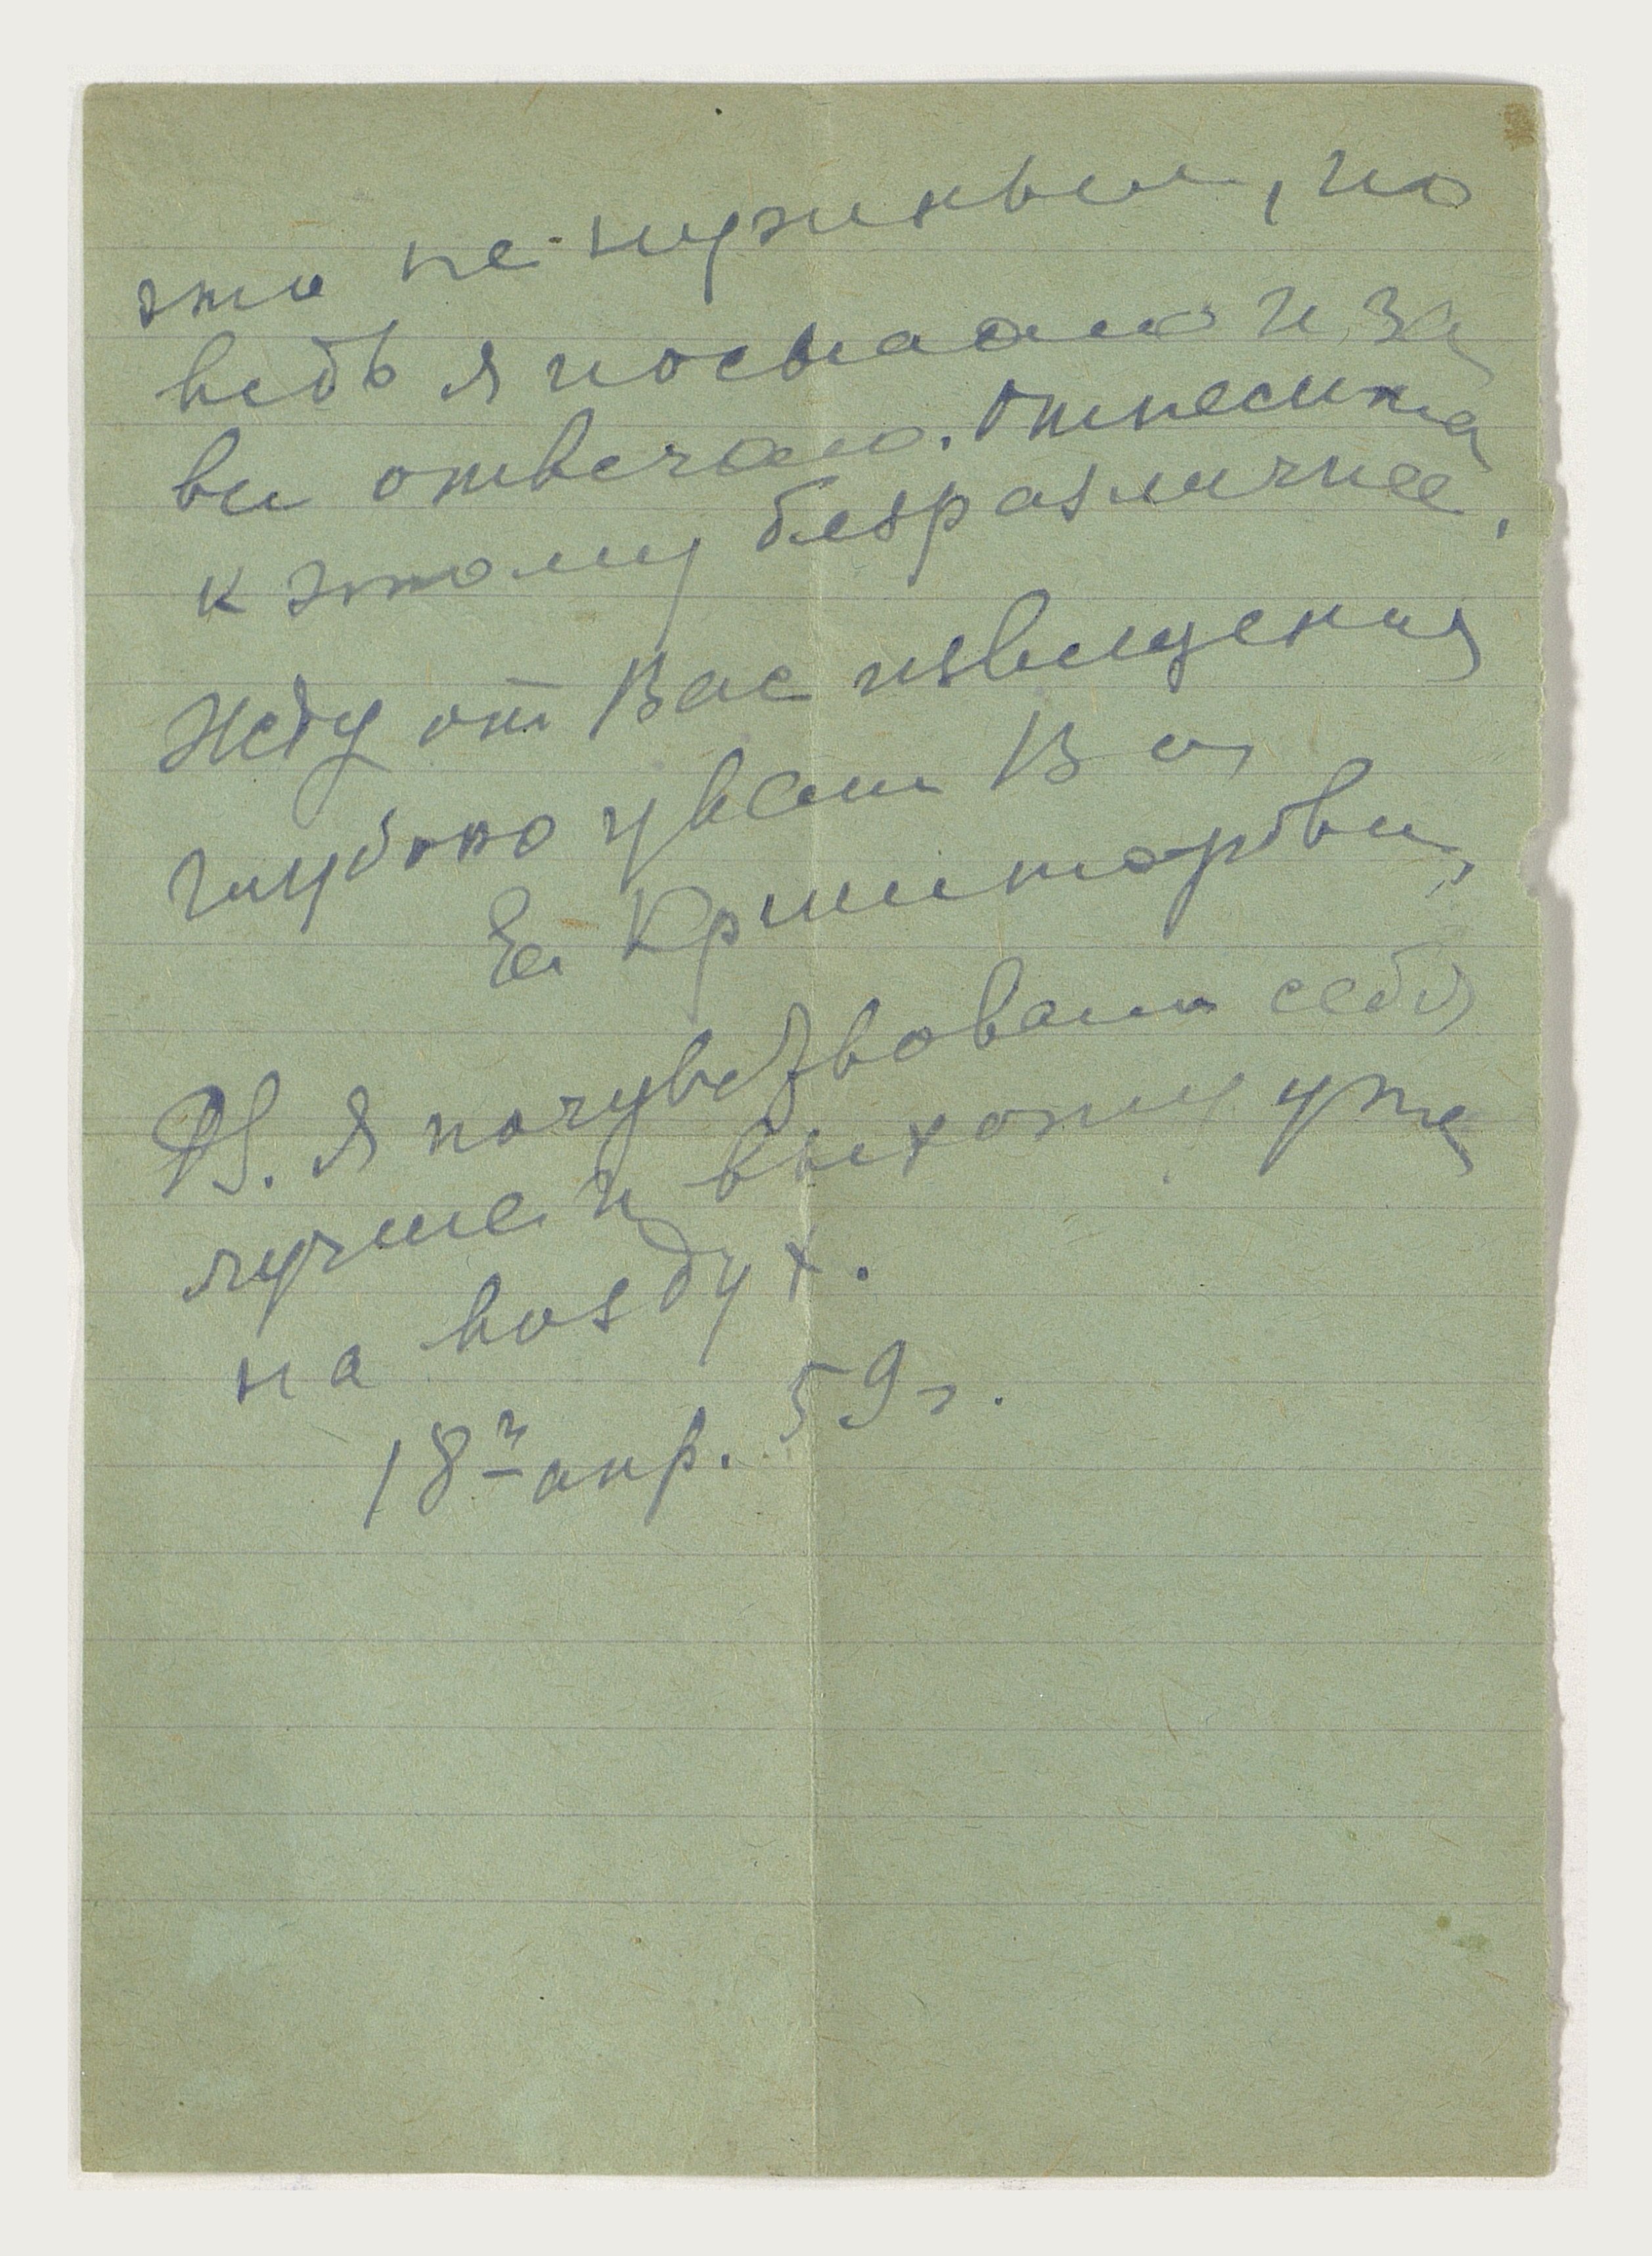 это не нужным, но
ведь я посылаю и за
вы отвечаю. Отнесика
к этому безразличнее.
Жду от Вас извещения
глубоко уваж Вас
Ек
PS. Я почувствовала себя
лучше и выхожу уже
на воздух.
18го апр. 59 г.